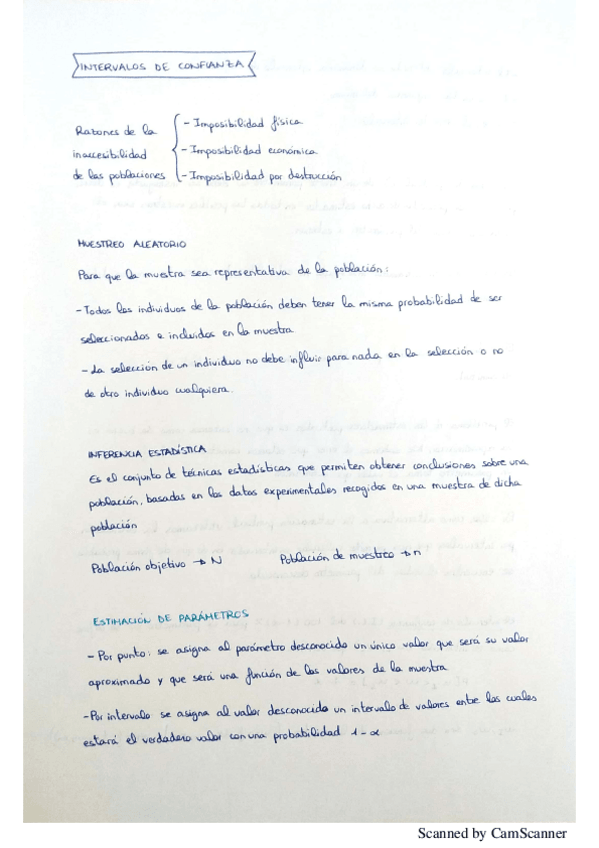 INTERVALOS DE CONFIANZA
Razones de la
inaccesibilidad
de las poblaciones
- Imposibilidad física
- Imposibilidad económica
- Imposibilidad por destrucción
MUESTREO ALEATORIO
Para que la muestra sea representativa de la población:
- Todos los individuos de la población deben tener la misma probabilidad de ser
seleccionados e incluidos en la muestra
- La selección de un individuo no debe influir para nada en la selección o no
de otro individuo cualquiera.
INFERENCIA ESTADÍSTICA
Es el conjunto de técnicas estadísticas que permiten obtener conclusiones sobre una
población, basadas en los datos experimentales recogidos en una muestra de dicha
población
Población objetivo → N Población de muestreo → n
ESTIMACIÓN DE PARÁMETROS
- Por punto: se asigna al parámetro desconocido un único valor que será su valor
aproximado y que será una función de los valores de la muestra
- Por intervalo se asigna al valor desconocido un intervalo de valores entre los cuales
estará el verdadero valor con una probabilidad 1-α
Scanned by CamScanner